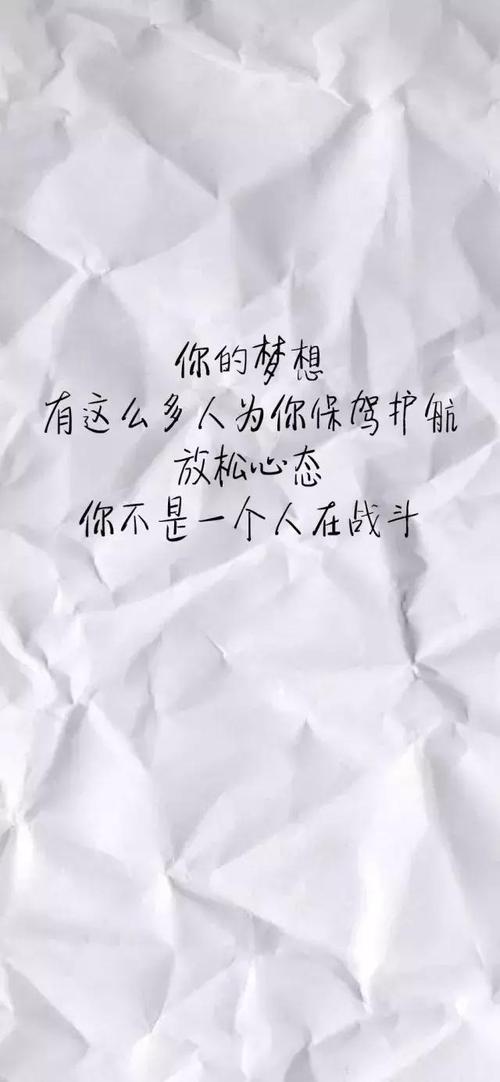 你的梦想
有这么多人为你保驾护航
放松心态
你不是一个人在战斗